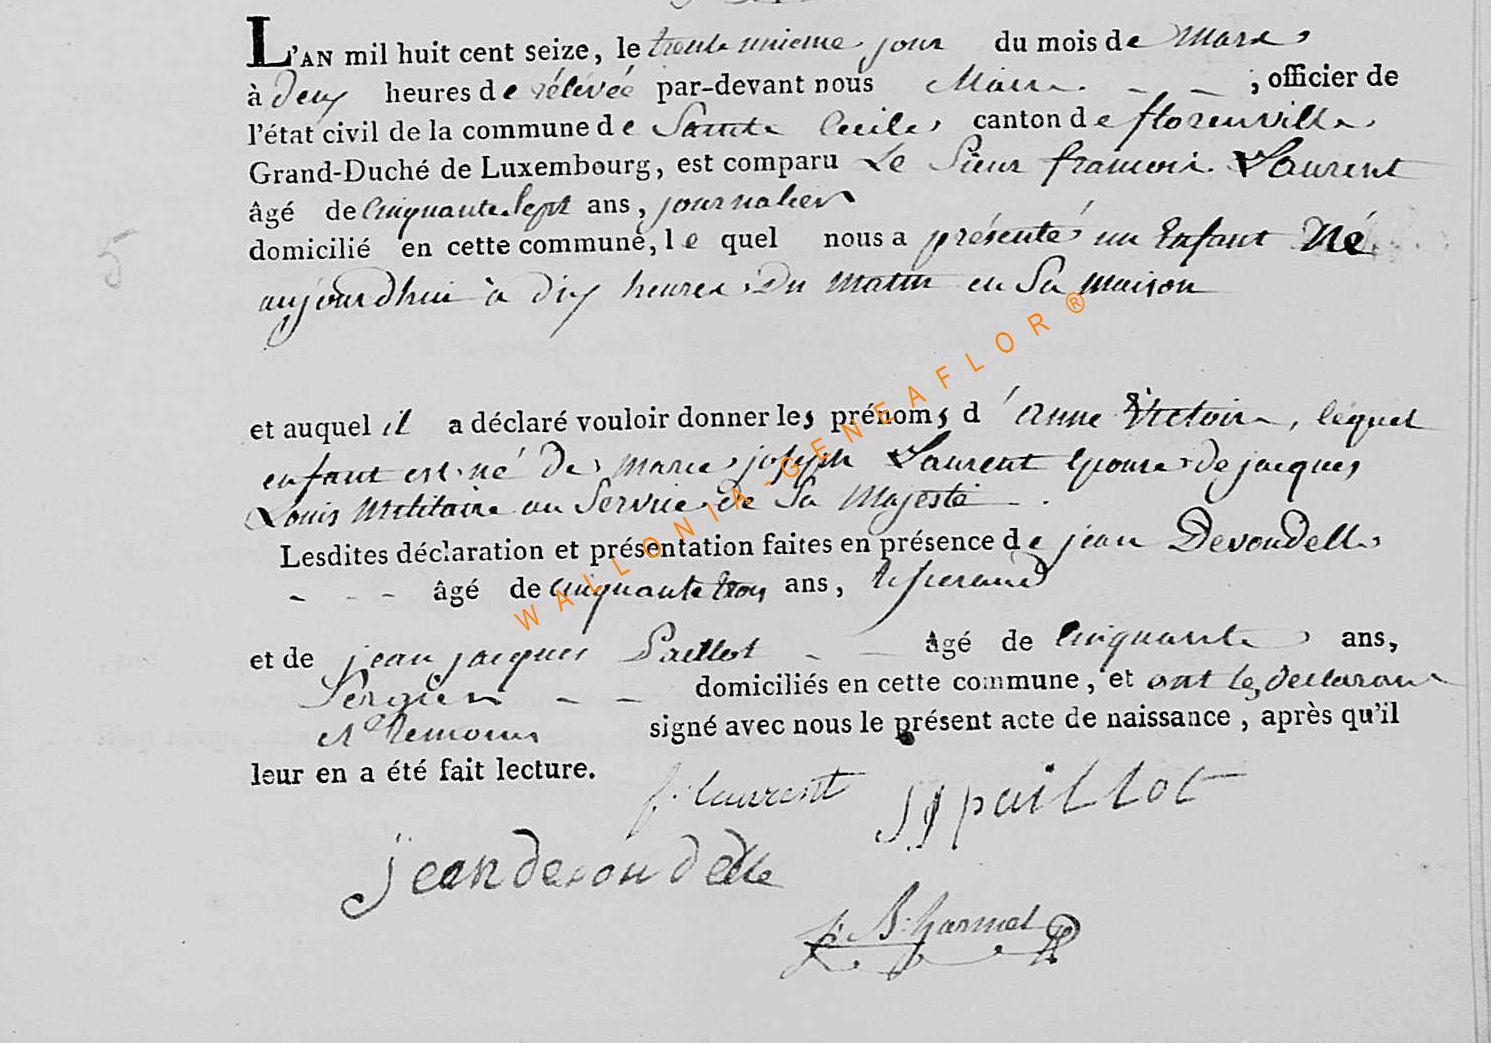 L'AN mil huit cent seize, le trente unieme jour du mois de Mars
à deux heures de rélévée par-devant nous Maire ; officier de
l'état civil de la commune de Sainte Cecile, canton de florenville
Grand-Duché de Luxembourg, est comparu Le Sieur francois Laurent
âgé de Cinquante Sept ans, journalier
domicilié en cette commune, le quel nous a présenté un Enfant Né
aujourdhui à dix heures Du Matin en Sa Maison
5
et auquel il a déclaré vouloir donner les prénoms d'Anne Victoire, léquel
enfant est né De marie joseph Laurent Epouse de jacques
Louis Militaire au Service de Sa Majesté
Lesdites déclaration et présentation faites en présence de jean Devoudelle
âgé de cinquante trois ans, tisserand
et de jean jacques Paillot âgé de Cinquante ans,
Sergier domiciliés en cette commune, et ont les declarant
et temoins signé avec nous le présent acte de naissance, après qu'il
leur en a été fait lecture.
f: laurent JJ paillot
jean devoudelle
B: harmel
WALLONIA-GENEAFLOR®